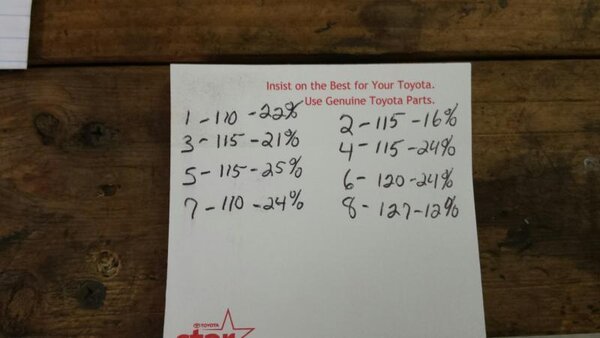 Insist on the Best for Your Toyota.
Use Genuine Toyota Parts.
1-110-22% 2-115-16%
3-115-21% 4-115-24%
5-115-25% 6-120-24%
7-110-24% 8-127-12%
TOYOTA
star